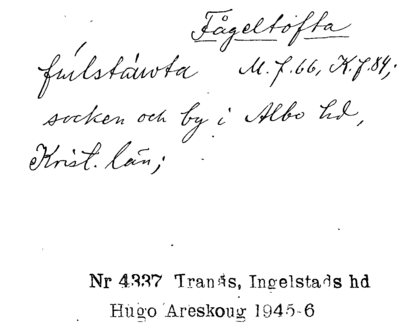 Fågeltofta
M.f.66, K.f.84;
socken och by i Albo hd,
Krist. län;
Nr 4337 Tranås, Ingelstads hd
Hugo Areskoug 1945-6